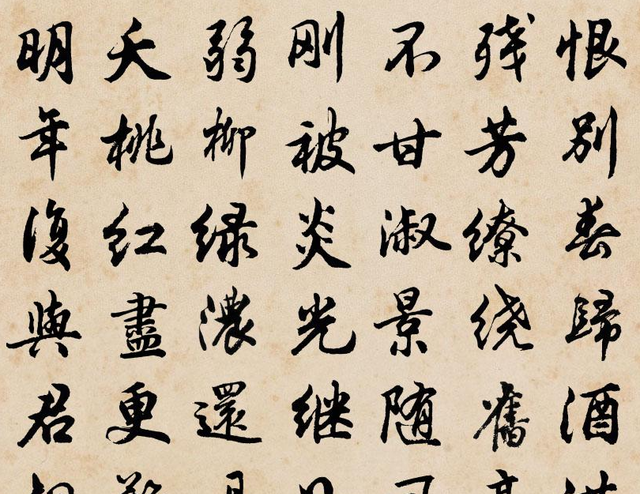 恨别春歸酒
残芳缭绕舊
不甘淑景随
刚被炎光继
弱柳绿濃還
夭桃红盡更
明年復與君